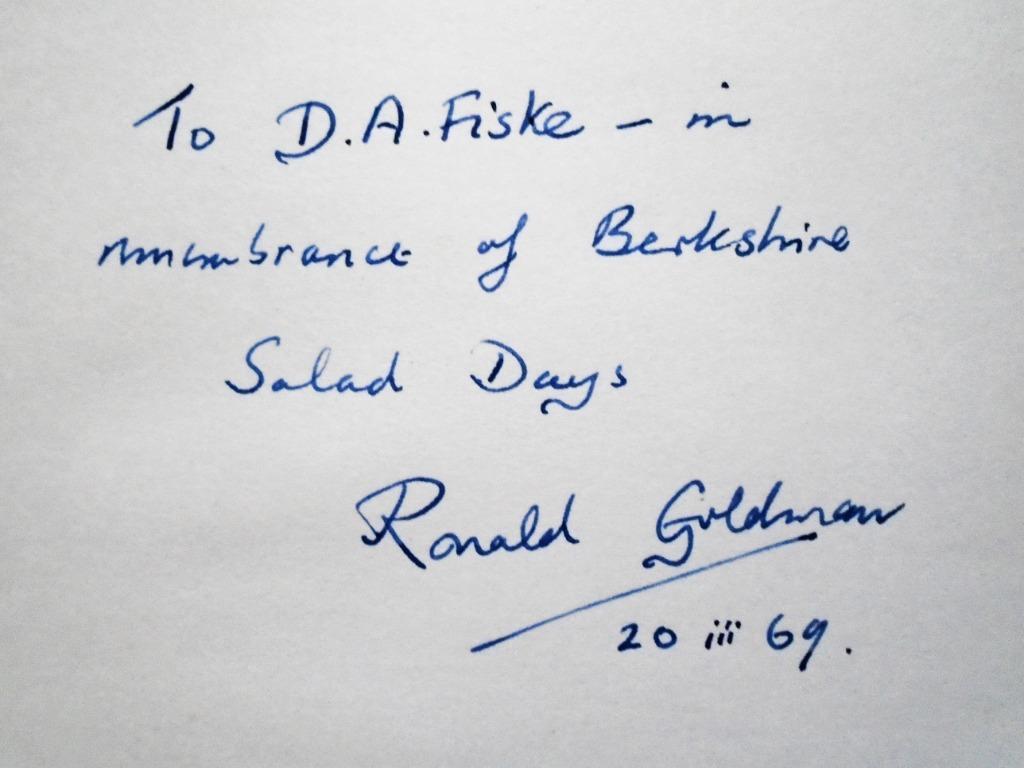 To D.A. Fiske – in
remembrance of Berkshire
Salad Days
Ronald Goldman
20 iii 69.